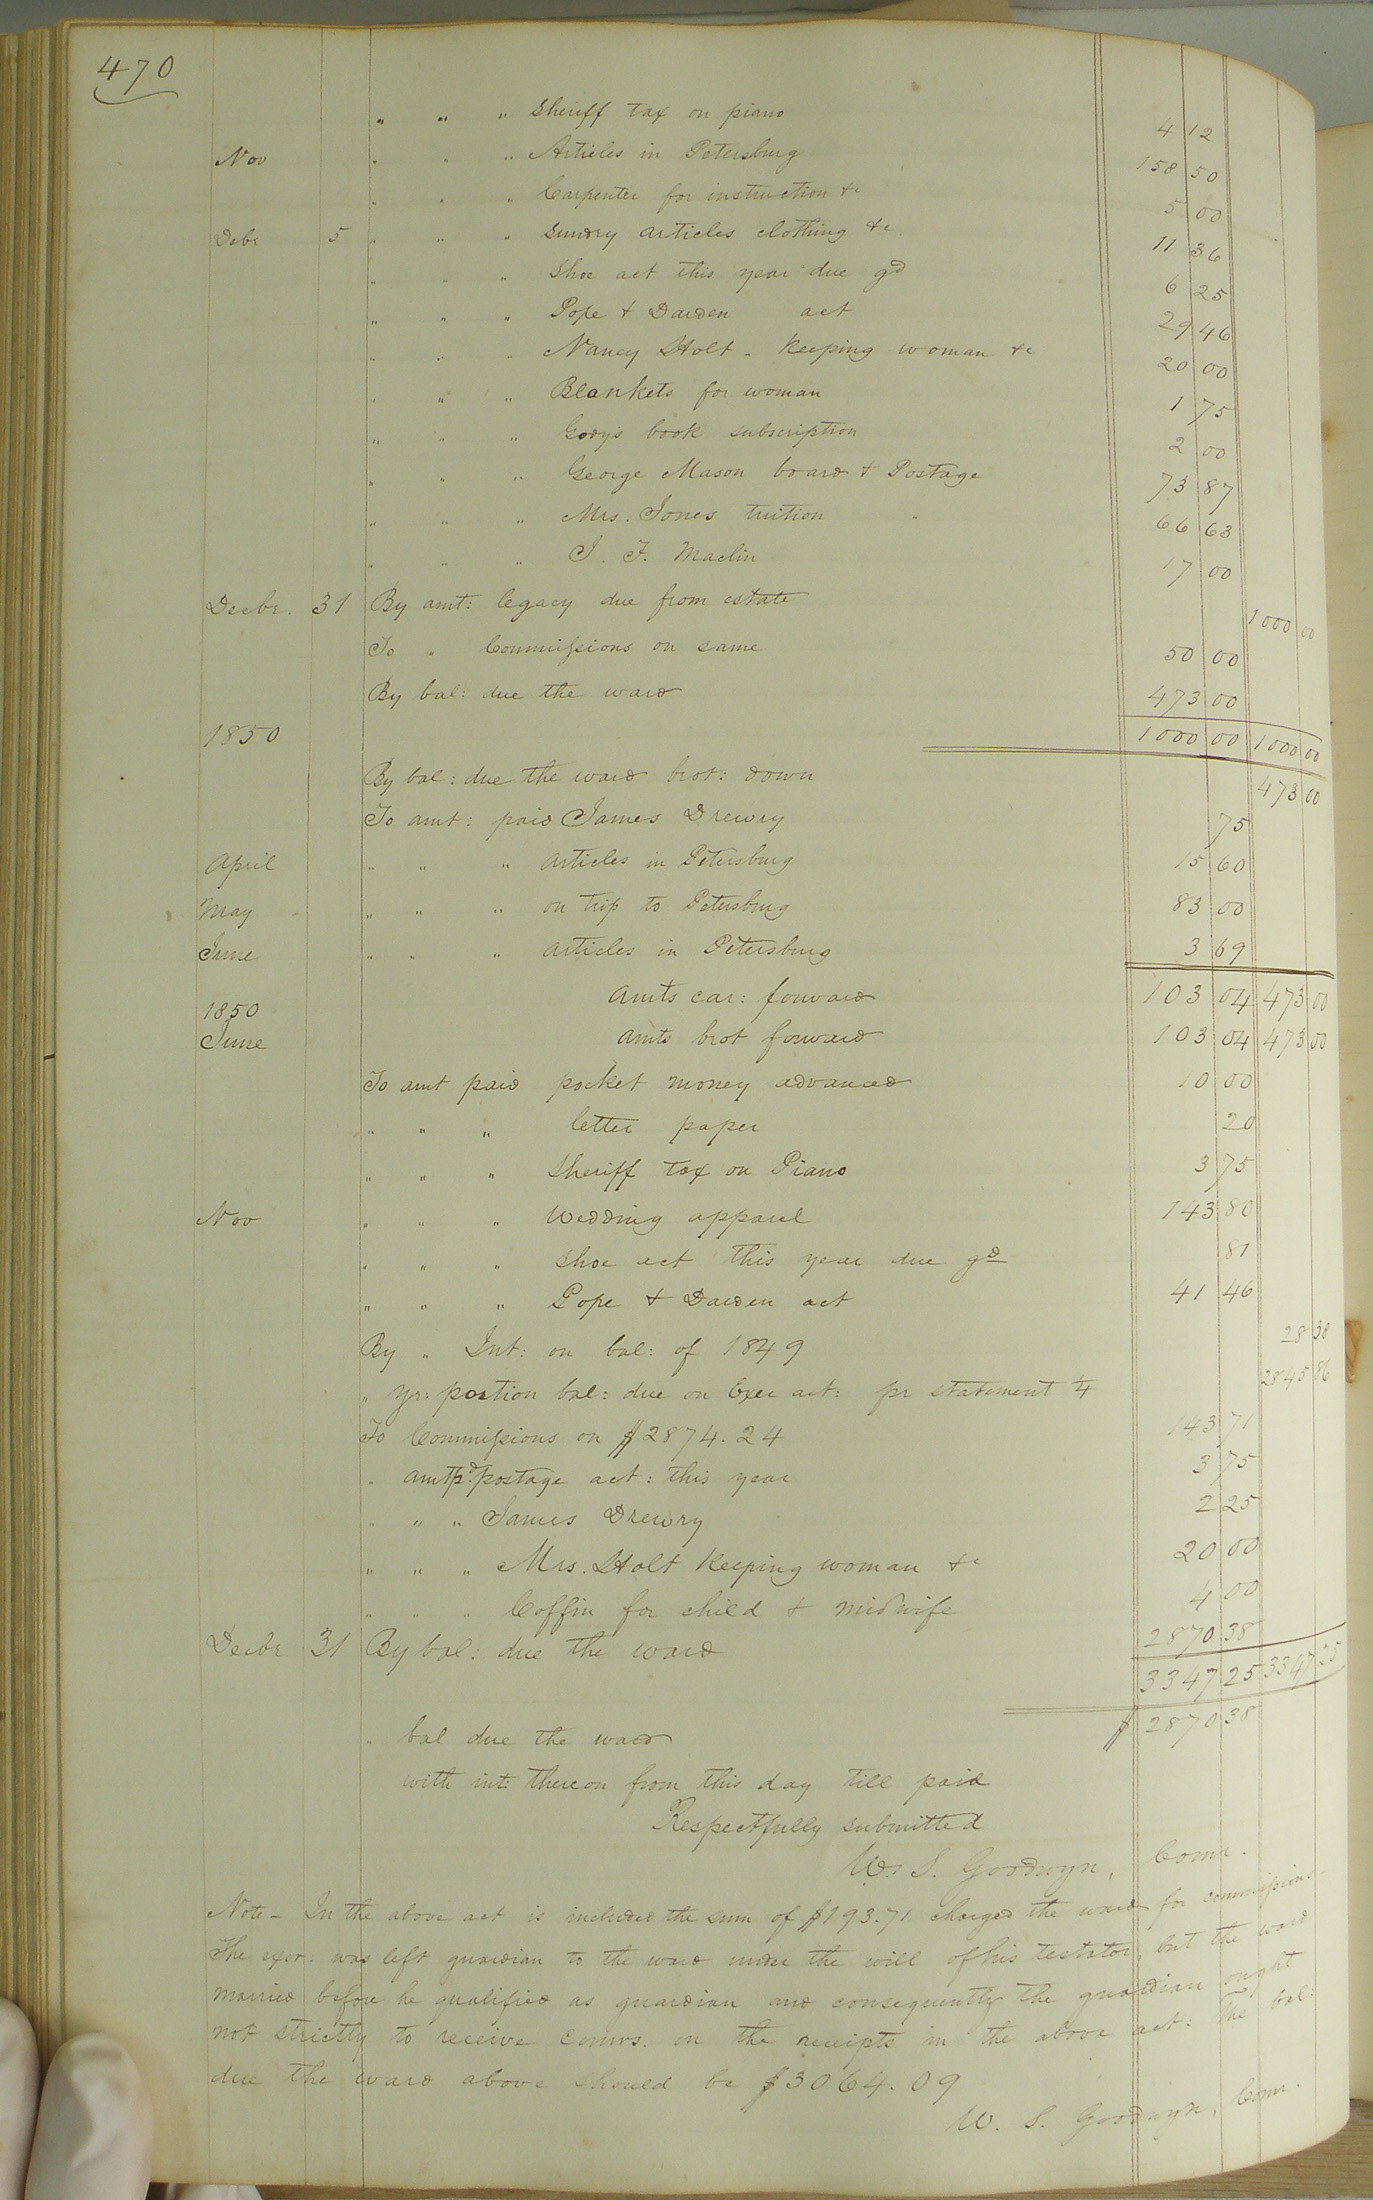 470
" " " Sheriff tax on piano 4 12
Nov " " " Articles in Petersburg 158 50
" " " Carpenter for instruction &c 5 00
Debr 5 " " " Sundry articles clothing &c 11 36
" " " Shoe act this year due gd 6 25
" " " Pope & Darden act 29 46
" " " Nancy Holt - Keeping woman &c 20 00
" " " Blankets for woman 1 75
" " " Godys book subscription 2 00
" " " George Mason board & Postage 73 87
" " " Mrs. Jones tuition 66 63
" " " J. F. Maclin 17 00
Decbr. 31 By amt: legacy due from estate 1000 00
To " Commissions on same 50 00
By bal: due the ward 473 00
1850 1000 00 1000 00
By bal: due the ward brot: down 473 00
To amt: paid James Drewry 75
April " " " articles in Petersburg 15 60
May " " " on trip to Petersburg 83 00
June " " " articles in Petersburg 3 69
amts car: forward 103 04 473 00
1850
June amts brot forward 103 04 473 00
To amt paid pocket money advanced 10 00
" " " letter paper 20
" " " Sheriff tax on Piano 3 75
Nov " " " Wedding apparel 143 80
" " " shoe act this year due gd 81
" " " Pope & Darden act 41 46
By " Int: on bal: of 1849 28 38
" yr: portion bal: due on Exec act: pr statement 1/4 2845 86
To Commissions on $2874.24 143 71
" amt pd. postage act: this year 3 75
" " " James Drewry 2 25
" " " Mrs. Holt Keeping woman &c 20 00
" " " Coffin for child & midwife 4 00
Decbr 31 By bal: due the ward 2870 38
3347 25 3347 25
" bal due the ward $ 2870 38
with int: thereon from this day till paid
Respectfully submitted
W. S. Goodwyn, Comr.
Note - In the above act is included the sum of $193.71 charged the ward for commissions.
The exor: was left guardian to the ward under the will of his testator, but the ward
married before he qualified as guardian and consequently the guardian ought
not strictly to receive comrs. on the receipts in the above act: The bal:
due the ward above should be $3064.09
W. S. Goodwyn, Comr.